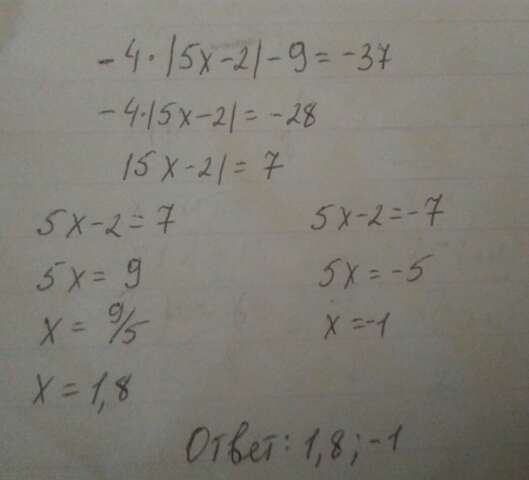 -4·|5x-2|-9=-37
-4·|5x-2|=-28
|5x-2|=7
5x-2=7
5x=9
x=9/5
x=1,8
5x-2=-7
5x=-5
x=-1
Ответ: 1,8; -1